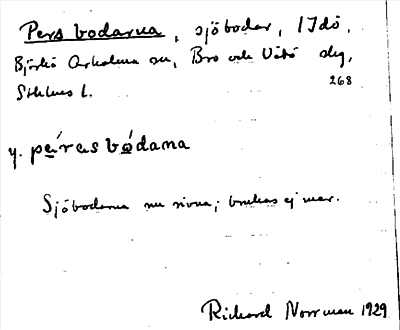 Pers bodarna, sjöbodar, /Idö,
Björkö Arholma sn, Bro och Vätö slg,
Sthlms l. 268
y. pæ̀ras bódana
Sjöbodarna nu rivna; brukas ej mer.
Richard Norrman 1929